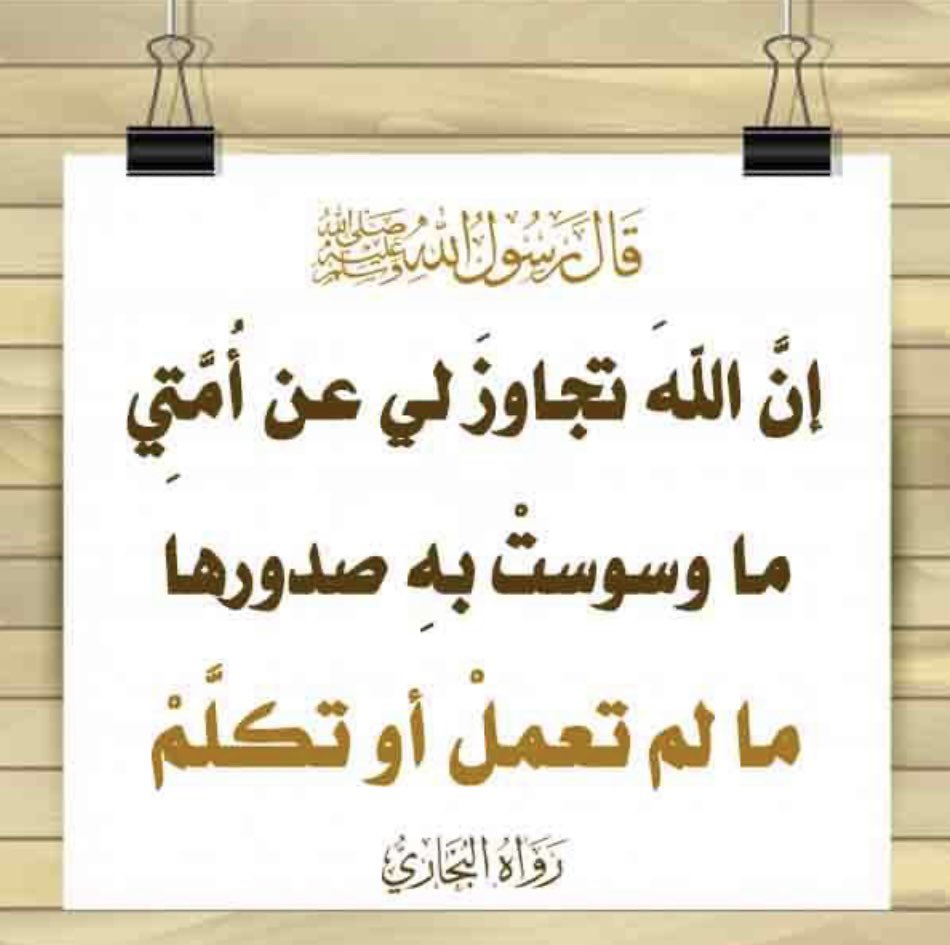 قَالَ رَسُولُ اللهِ صَلَّى اللهُ عَلَيْهِ وَسَلَّمَ
إنَّ اللّهَ تجاوزَ لي عن أُمَّتِي
ما وسوستْ بهِ صدورها
ما لم تعملْ أو تكلَّمْ
رَوَاهُ البُخَارِيُّ